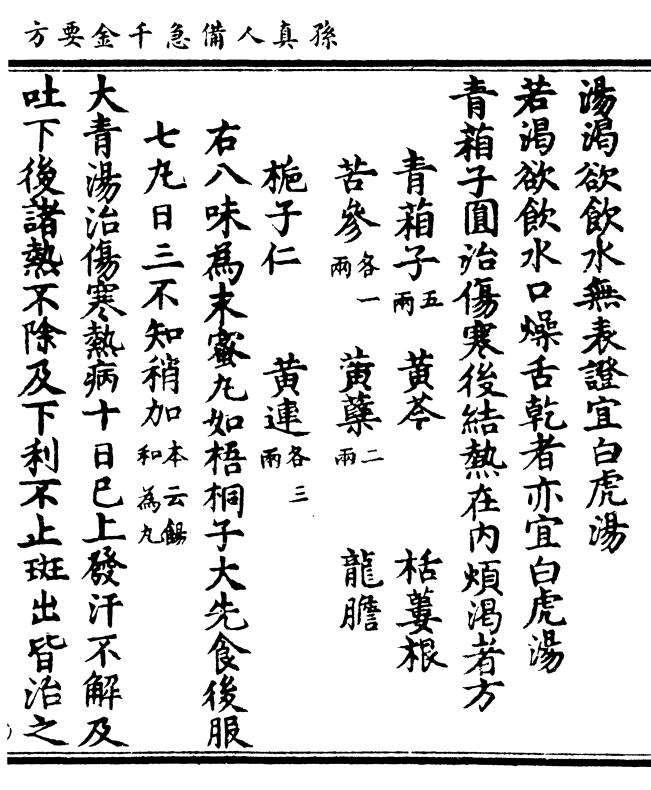 孫真人備急千金要方
湯渴欲飲水無表證宜白虎湯
若渴欲飲水口燥舌乾者亦宜白虎湯
青葙子圓治傷寒後結熱在內煩渴者方
青葙子五兩 黃芩 栝蔞根
苦參各一兩 黃蘗二兩 龍膽
梔子仁 黃連各三兩
右八味為末蜜丸如梧桐子大先食後服
七丸日三不知稍加本云餳和為丸
大青湯治傷寒熱病十日已上發汗不解及
吐下後諸熱不除及下利不止斑出皆治之